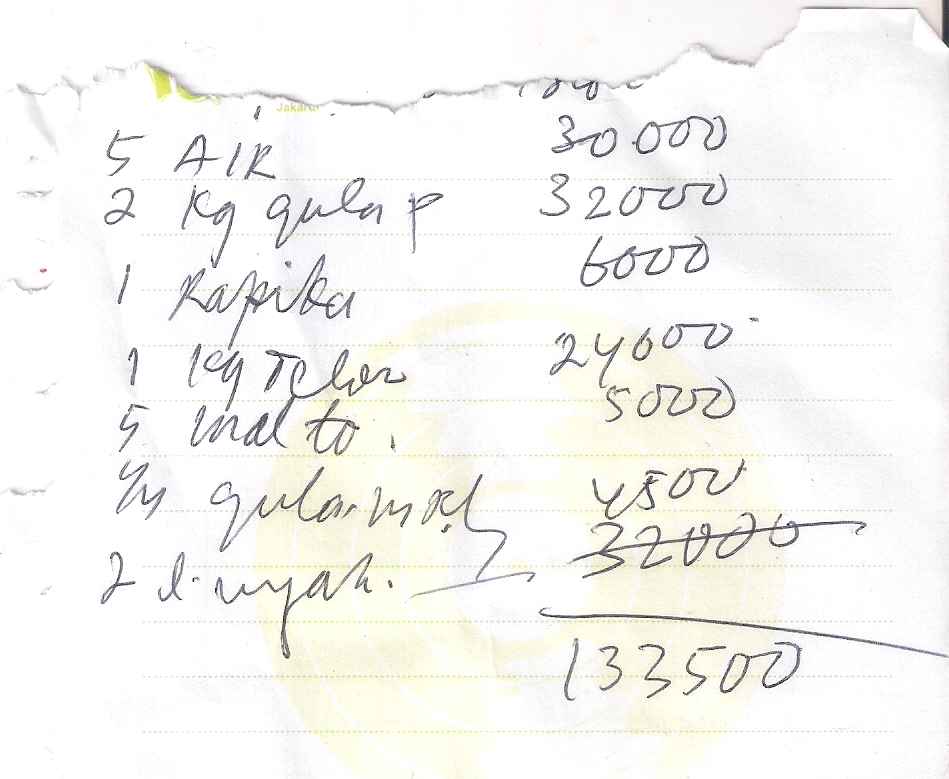 Jakarta
5 AIR 30.000
2 Kg gula p 32000
1 Kapika 6000
1 Kg Telor 24000
5 to. 5000
1/4 gula 4500
2 l. nyak. 32000
133500